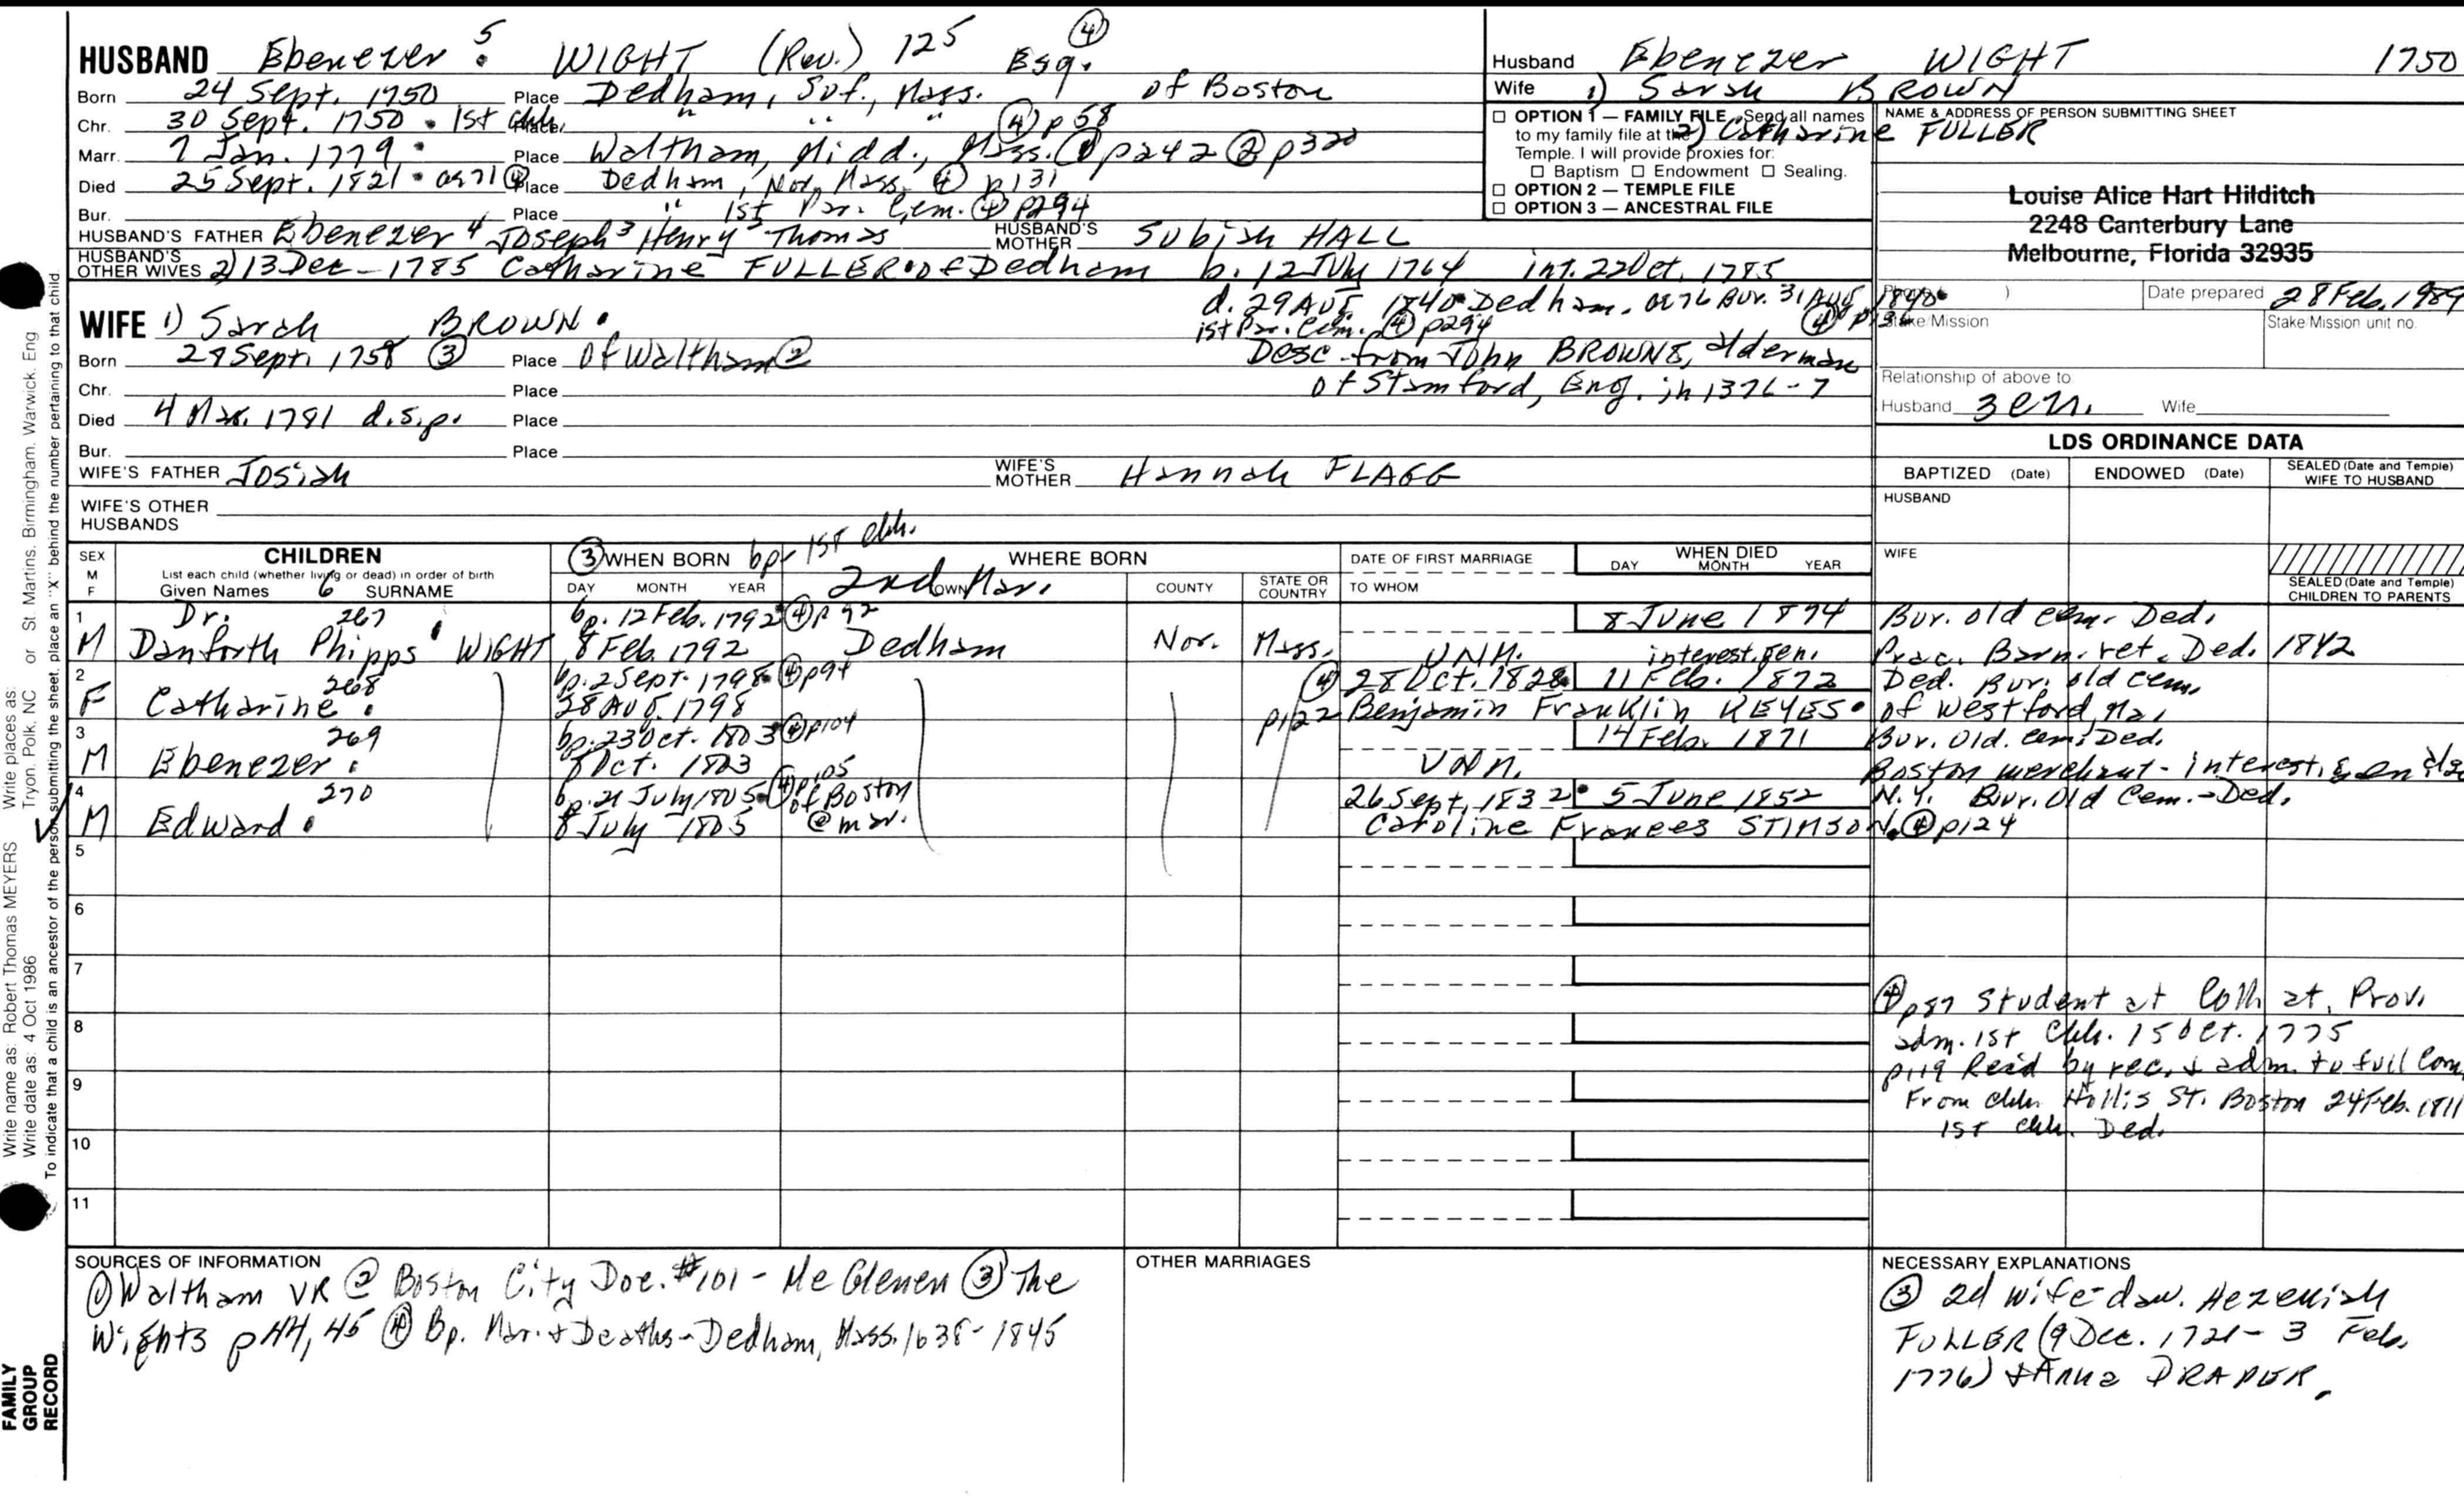 HUSBAND Ebenezer 5 WIGHT (Rev.) 125 Esq. ④
Born 24 Sept. 1750 Place Dedham, Suf., Mass. of Boston
Chr. 30 Sept. 1750 • 1st Chh. Place " " " ④ p 58
Marr. 7 Jan. 1779 Place Waltham, Midd., Mass. ① p242 ② p320
Died 25 Sept. 1821 • ae 71 ④ Place Dedham, Nor. Mass. ④ p131
Bur. Place " 1st Par. Cem. ④ p294
HUSBAND'S FATHER Ebenezer 4 Joseph 3 Henry 2 Thomas HUSBAND'S MOTHER Subiah HALL
HUSBAND'S OTHER WIVES 2) 13 Dec - 1785 Catharine FULLER • of Dedham b. 12 July 1764 int. 22 Oct. 1785
d. 29 Aug 1840 • Dedham. ae 76 Bur. 31 Aug 1840
1st Par. Cem. ④ p294 ④
WIFE 1) Sarah BROWN •
Born 28 Sept. 1758 ③ Place of Waltham ②
Desc. from John BROWNE, alderman
of Stamford, Eng. in 1376-7
Chr. Place
Died 4 Mar. 1781 d.s.p. Place
Bur. Place
WIFE'S FATHER Josiah WIFE'S MOTHER Hannah FLAGG
WIFE'S OTHER HUSBANDS
Husband Ebenezer WIGHT 1750
Wife 1) Sarah BROWN
2) Catharine FULLER
☐ OPTION 1 — FAMILY FILE Send all names
to my family file at the
Temple. I will provide proxies for:
☐ Baptism ☐ Endowment ☐ Sealing.
☐ OPTION 2 — TEMPLE FILE
☐ OPTION 3 — ANCESTRAL FILE
NAME & ADDRESS OF PERSON SUBMITTING SHEET
Louise Alice Hart Hilditch
2248 Canterbury Lane
Melbourne, Florida 32935
Phone ( ) Date prepared 28 Feb. 1989
Stake/Mission Stake/Mission unit no.
Relationship of above to
Husband 3 en. Wife
LDS ORDINANCE DATA
BAPTIZED (Date) ENDOWED (Date) SEALED (Date and Temple) WIFE TO HUSBAND
HUSBAND
WIFE
SEALED (Date and Temple) CHILDREN TO PARENTS
SEX M F
CHILDREN
List each child (whether living or dead) in order of birth
Given Names 6 SURNAME
③ WHEN BORN bp 1st Chh.
DAY MONTH YEAR
WHERE BORN
2nd Mar.
TOWN COUNTY STATE OR COUNTRY
DATE OF FIRST MARRIAGE
TO WHOM
WHEN DIED
DAY MONTH YEAR
1 Dr. 267 bp. 12 Feb. 1792 ④ p 92 8 June 1874 Bur. old cem. Ded.
M Danforth Phipps WIGHT 8 Feb. 1792 Dedham Nor. Mass. UNM. interest. gen. Prac. Barn. ret. Ded. 1842
2 268 bp. 2 Sept. 1798 ④ p94 ④ 28 Oct. 1828 11 Feb. 1872 Ded. Bur. old cem.
F Catharine 28 Aug. 1798 p122 Benjamin Franklin KEYES • of Westford, Ma.
3 269 bp. 23 Oct. 1803 ④ p104 14 Feb. 1871 Bur. Old. Cem. Ded.
M Ebenezer Oct. 1803 UNM. Boston merchant - interest. gen
4 270 bp. 21 July 1805 ④ p105 of Boston 26 Sept. 1832 • 5 June 1852 N.Y. Bur. Old Cem. - Ded.
M Edward 8 July 1805 @ mar. Caroline Frances STIMSON. ④ p124
5
6
7
8
9
10
11
④ p87 Student at Coll. at. Prov.
adm. 1st Chh. 15 Oct. 1775
p119 Rec'd by rec. & adm. to full Com.
From Chh. Hollis St. Boston 24 Feb. 1811
1st Chh. Ded.
SOURCES OF INFORMATION
① Waltham VR ② Boston City Doc. #101 - McGlenen ③ The
Wights p 44, 45 ④ Bp. Mar. & Deaths - Dedham, Mass. 1638-1845
OTHER MARRIAGES
NECESSARY EXPLANATIONS
③ 2d wife - dau. Hezekiah
FULLER (9 Dec. 1721 - 3 Feb.
1776) & Anna DRAPER.
Write name as: Robert Thomas MEYERS Write places as: Tryon, Polk, NC or St. Martins, Birmingham, Warwick, Eng
Write date as: 4 Oct 1986
To indicate that a child is an ancestor of the person submitting the sheet, place an "X" behind the number pertaining to that child
FAMILY
GROUP
RECORD